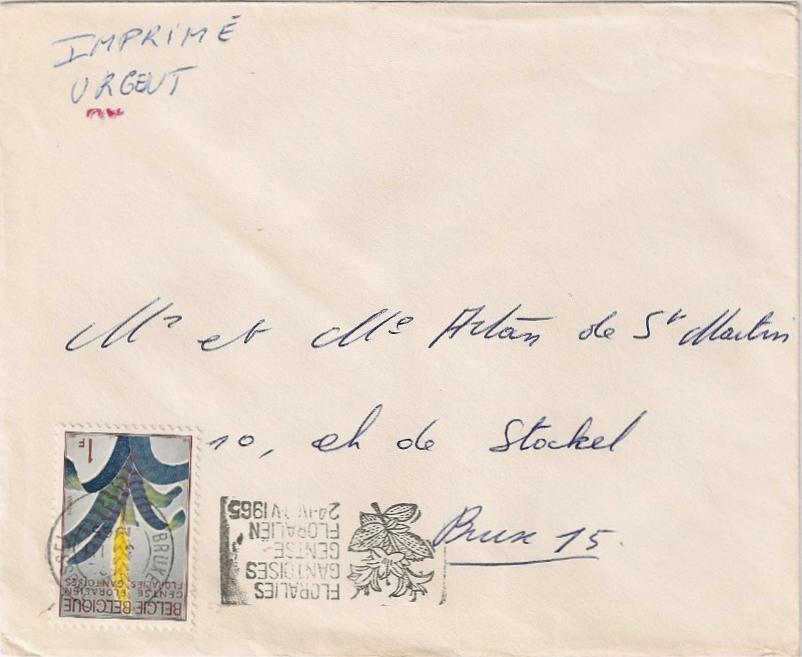 IMPRIMÉ
URGENT
Mr et Me Artan de St Martin
10, ch de Stockel
Brux 15.
1F
BELGIE-BELGIQUE
GENTSE FLORALIEN
FLORALIES GANTOISES
BRUXE
FLORALIES
GANTOISES
GENTSE-
FLORALIËN
24-IV V 1965